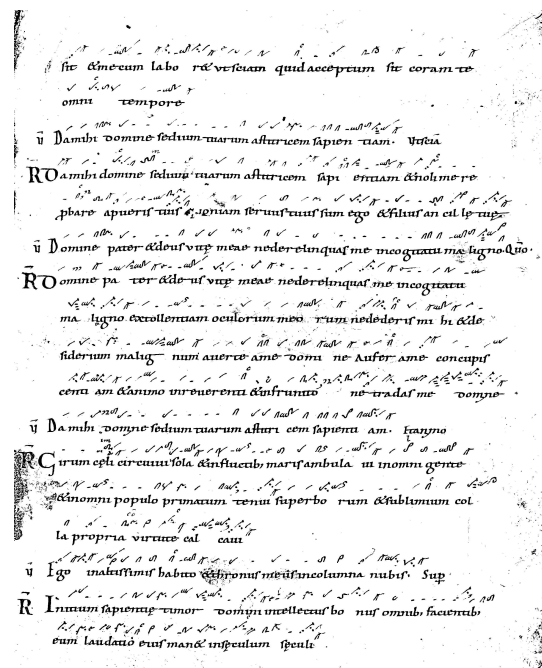 sit & mecum labo r& ut sciam quid acceptum sit coram te
omni tempore
V Da mihi domine sedium tuarum astricem sapien tiam. Ut sciā
R Da mihi domine sedium tuarum astricem sapi entiam & noli me re
pbare a pueris tuis quoniam servus tuus sum ego & filius ancillę tuę
V Domine pater & deus vitę meae ne derelinquas me in cogitatu maligno. Quo
R Domine pa ter & deus vitę meae ne derelinquas me in cogitatu
ma ligno extollentiam oculorum meo rum ne dederis mi hi & de
siderium malig num averte a me domi ne aufer a me concupis
centi am & animo inreverenti & infrunito ne tradas me domne
V Da mihi domne sedium tuarum astri cem sapienti am.
R Girum cęli circuivi sola & in fluctib; maris ambula vi in omni gente
& in omni populo primatum tenui superbo rum & sublimium col
la propria virtute cal cavi
V Ego in altissimis habito & thronus meus in columna nubis. Sup
R Initium sapientię timor domini intellectus bo nus omnib; facientib;
eum laudatio eius man& in sęculum sęculi